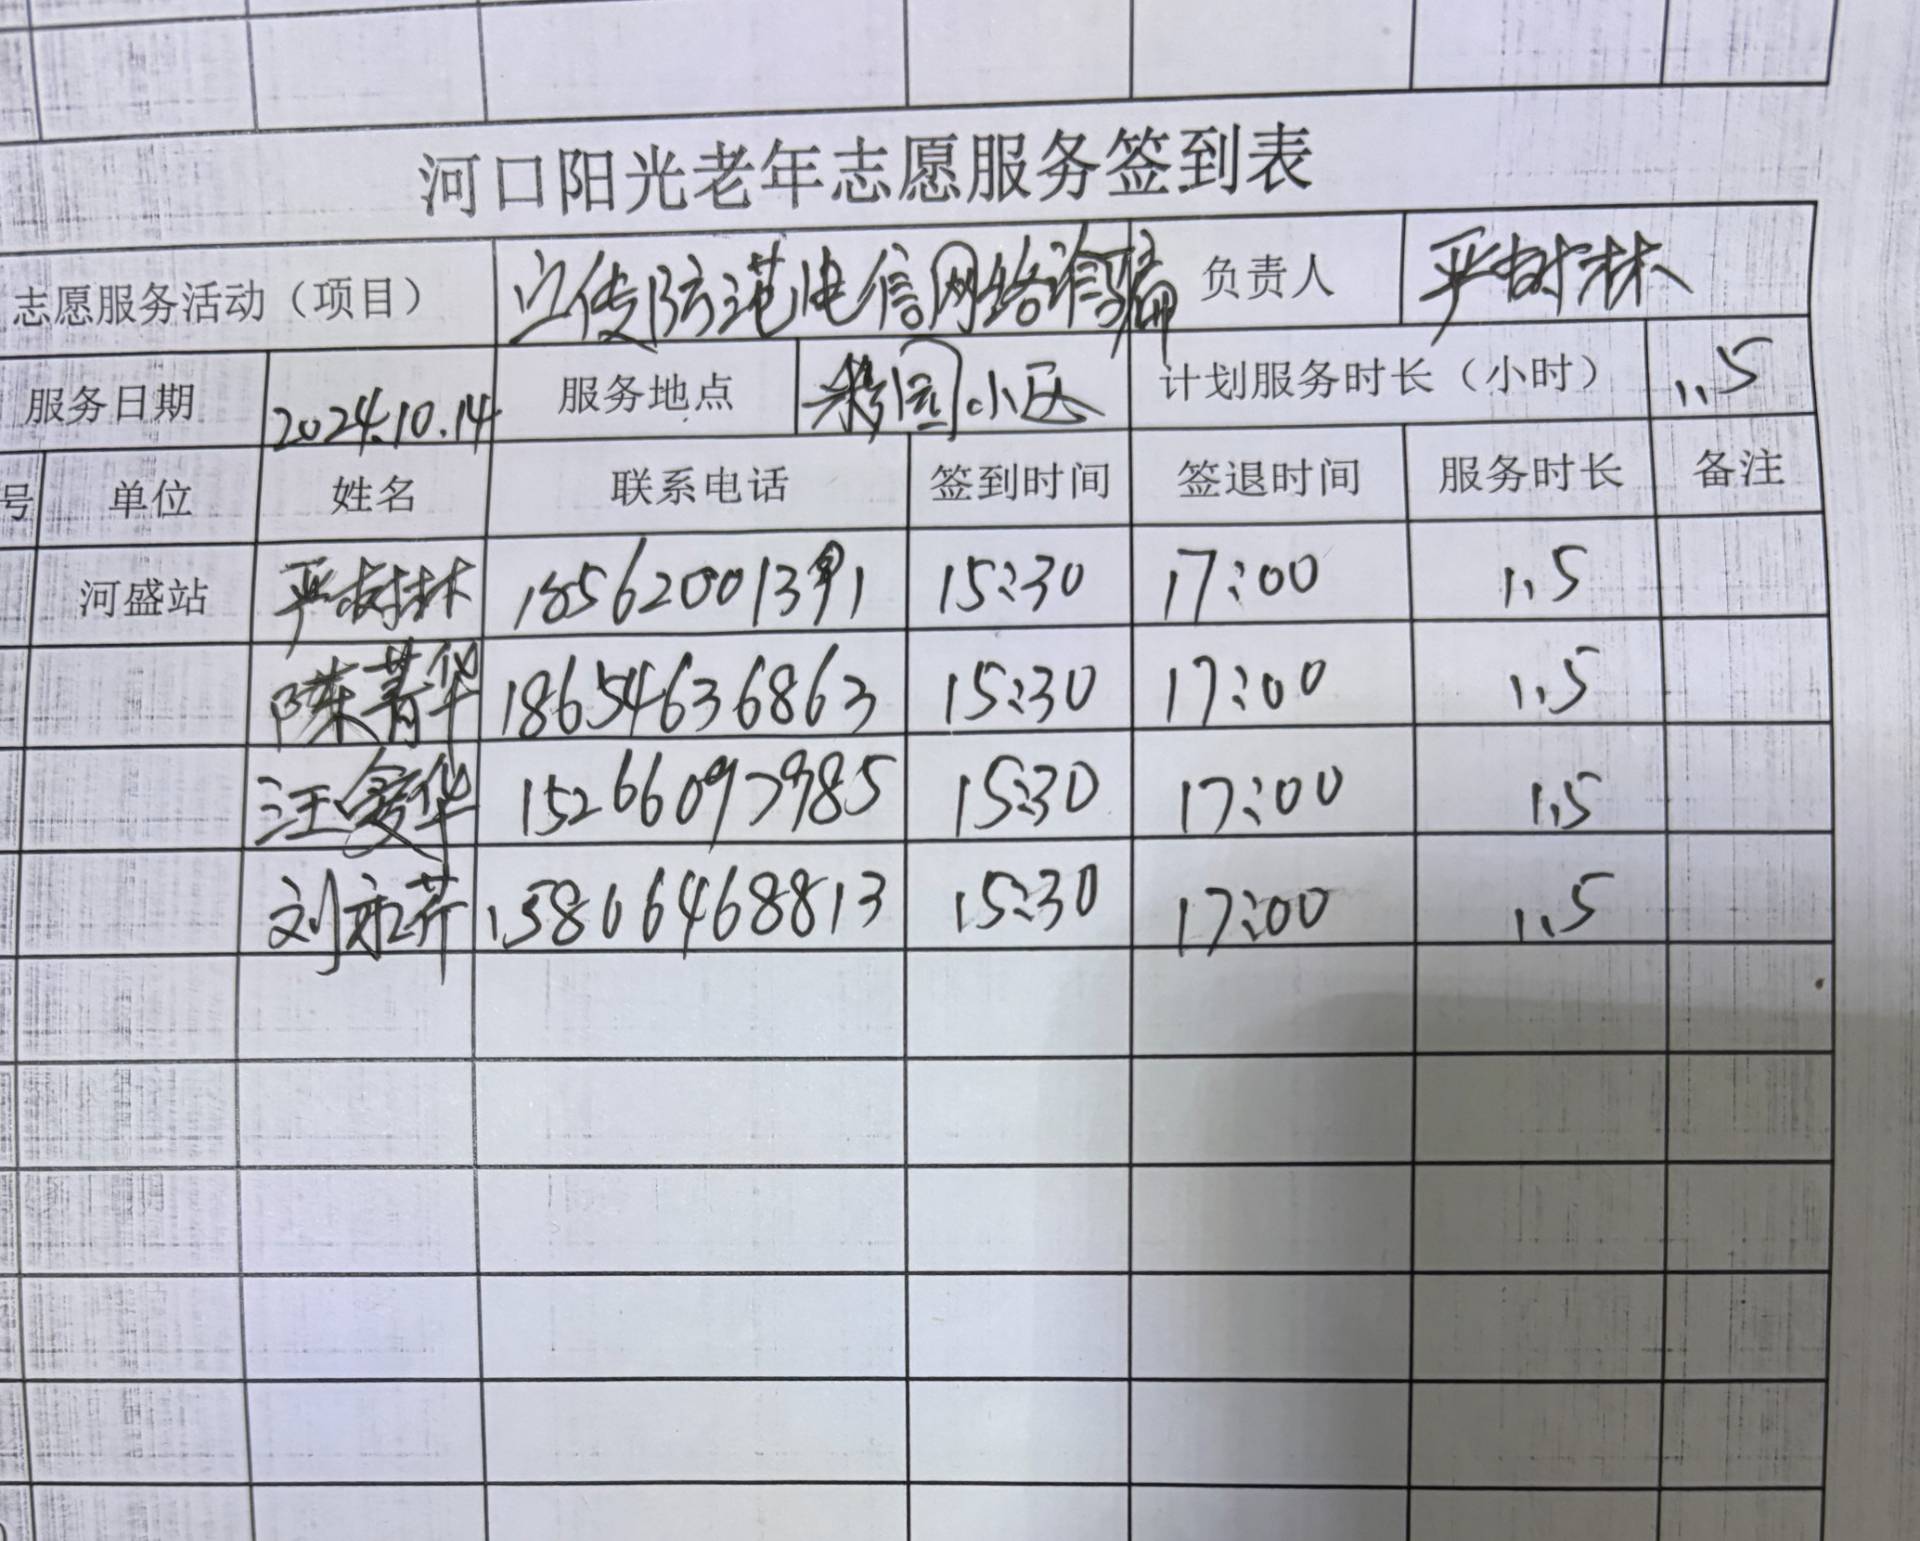 河口阳光老年志愿服务签到表
志愿服务活动（项目） 宣传防范电信网络诈骗 负责人 严树林
服务日期 2024.10.14 服务地点 园小区 计划服务时长（小时） 1.5
号 单位 姓名 联系电话 签到时间 签退时间 服务时长 备注
河盛站 严树林 15:30 17:00 1.5
陈菁华 18654636863 15:30 17:00 1.5
汪爱华 15266097985 15:30 17:00 1.5
刘永芹 13806468813 15:30 17:00 1.5